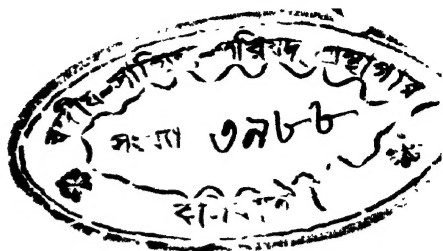 বঙ্গীয়-সাহিত্য-পরিষদ্ গ্রন্থাগার
সংখ্যা ৩৯৮৮